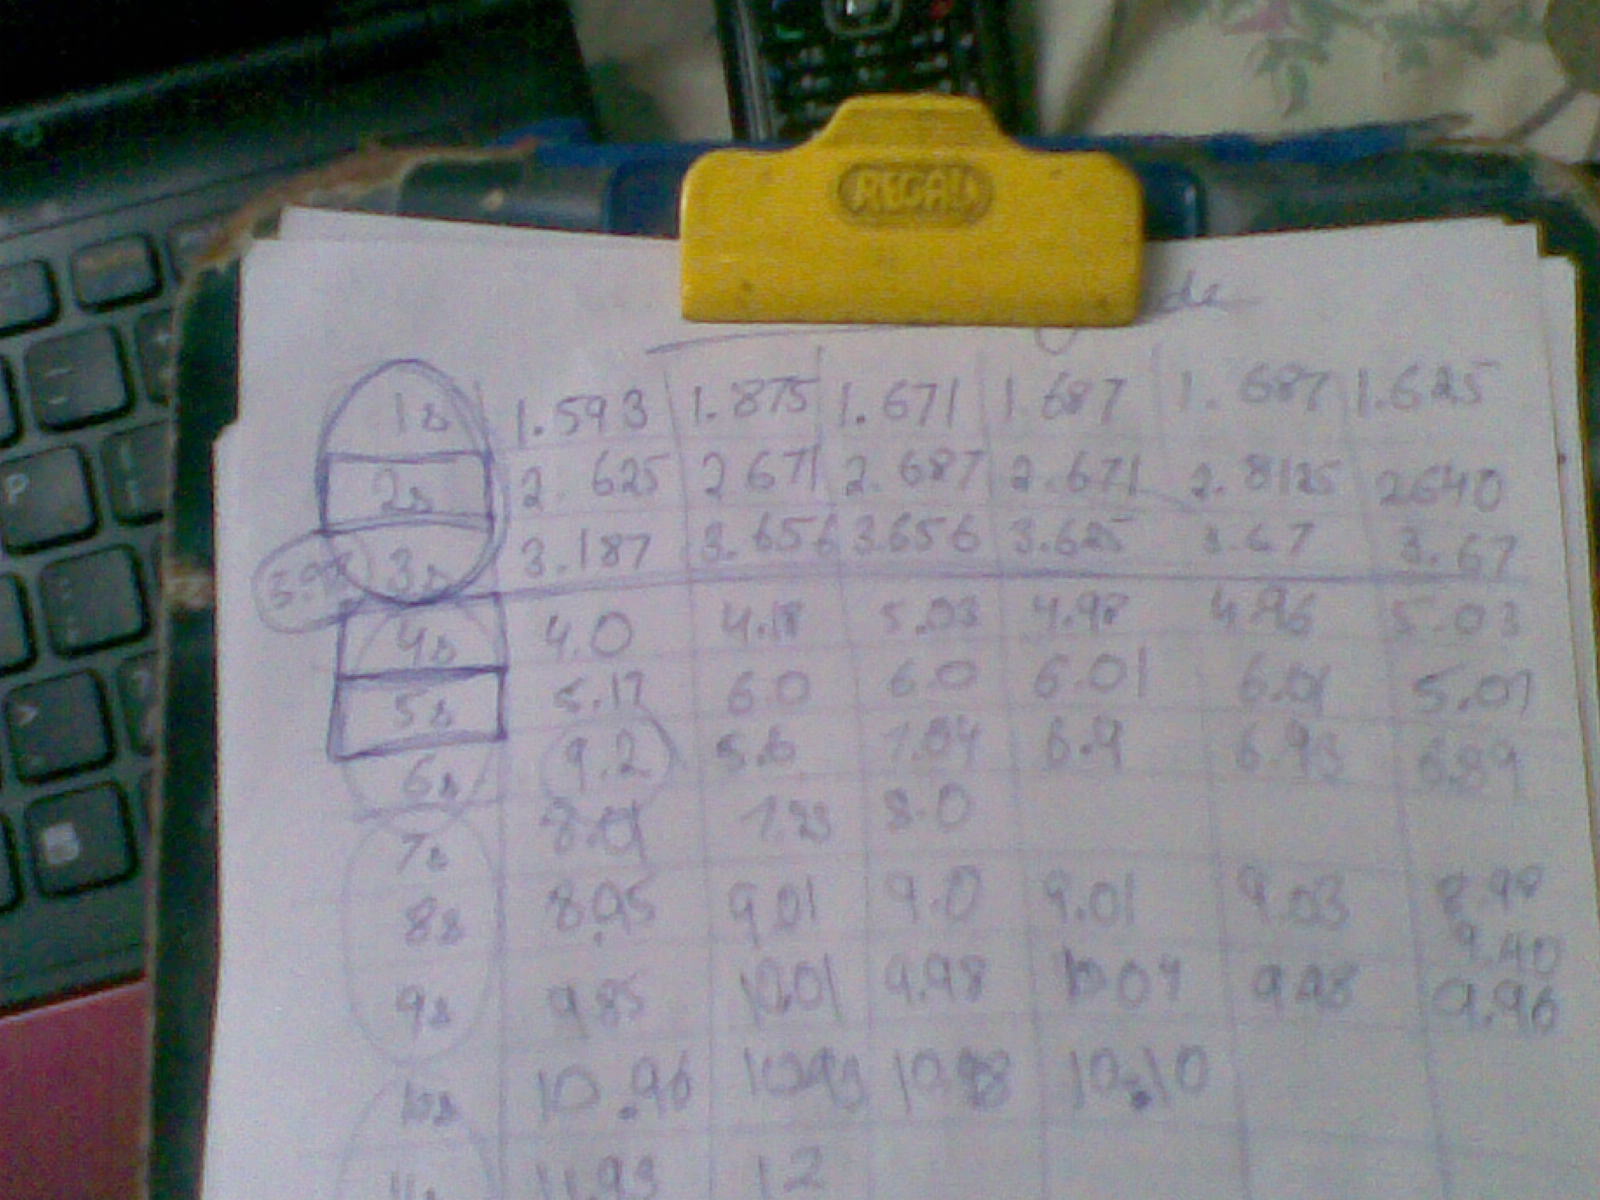 REGAL
de
1s 1.593 1.875 1.671 1.687 1.687 1.625
2s 2.625 2671 2.687 2.671 2.8125 2640
3s 3.187 3.656 3.656 3.625 3.67 3.67
4s 4.0 4.18 5.03 4.98 4.96 5.03
5s 5.17 6.0 6.0 6.01 6.01 5.07
6s 9.2 5.6 7.04 6.9 6.93 6.89
7s 8.01 7.93 8.0
8s 8.95 9.01 9.0 9.01 9.03 8.98
9.40
9s 9.85 10.01 9.98 10.04 9.98 9.96
10s 10.96 10.93 10.98 10.10
11s 11.93 12
P